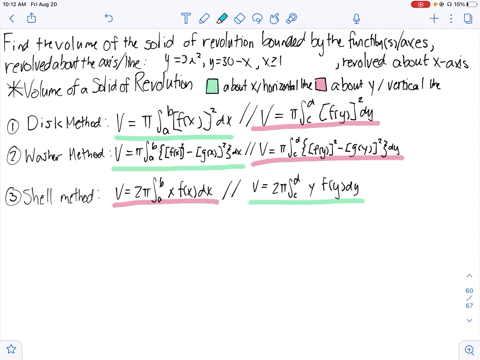 10:12 AM Fri Aug 20
15%
Find the volume of the solid of revolution bounded by the function(s)/axes,
revolved about the axis/line: y=3x², y=30-x, x≥1, revolved about x-axis
*Volume of a Solid of Revolution about x/horizontal line about y/vertical line
① Disk Method: V = π∫ₐᵇ[f(x)]²dx // V = π∫꜀ᵈ[f(y)]²dy
② Washer Method: V = π∫ₐᵇ{[f(x)]²-[g(x)]²}dx // V = π∫꜀ᵈ{[f(y)]²-[g(y)]²}dy
③ Shell method: V = 2π∫ₐᵇ x f(x)dx // V = 2π∫꜀ᵈ y f(y)dy
60
/
67